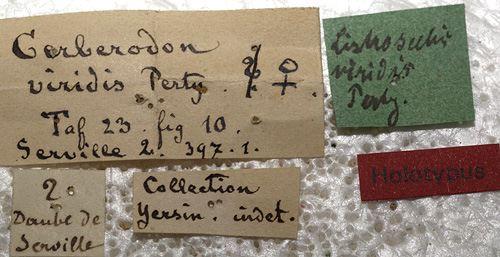 Cerberodon
viridis Perty. ♀
Taf 23. fig 10.
Serville 2. 397. 1.
Listroscelis
viridis
Perty.
Holotypus
2.
Daube de
Serville
Collection
Yersin. indet.